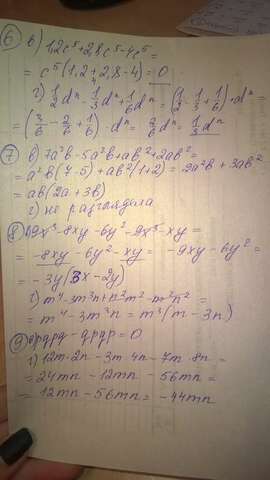 6 в) 1,2c⁵+2,8c⁵-4c⁵=
= c⁵(1,2+2,8-4)=0
г) 1/2 dⁿ - 1/3 dⁿ + 1/6 dⁿ = (1/2 - 1/3 + 1/6)·dⁿ =
= (3/6 - 2/6 + 1/6)·dⁿ = 2/6 dⁿ = 1/3 dⁿ
7 в) 7a²b-5a²b+ab²+2ab²=
= a²b(7-5)+ab²(1+2)=2a²b+3ab²
= ab(2a+3b)
г) не разглядела
8 9x³-8xy-6y²-9x³-xy=
= -8xy-6y²-xy= -9xy-6y²=
= -3y(3x-2y)
г) m⁴-3m³n+n²m²-m²n²=
= m⁴-3m³n=m³(m-3n)
9 -qpqp=0
г) 12m·2n-3m·4n-7m·8n=
= 24mn-12mn-56mn=
= 12mn-56mn=-44mn